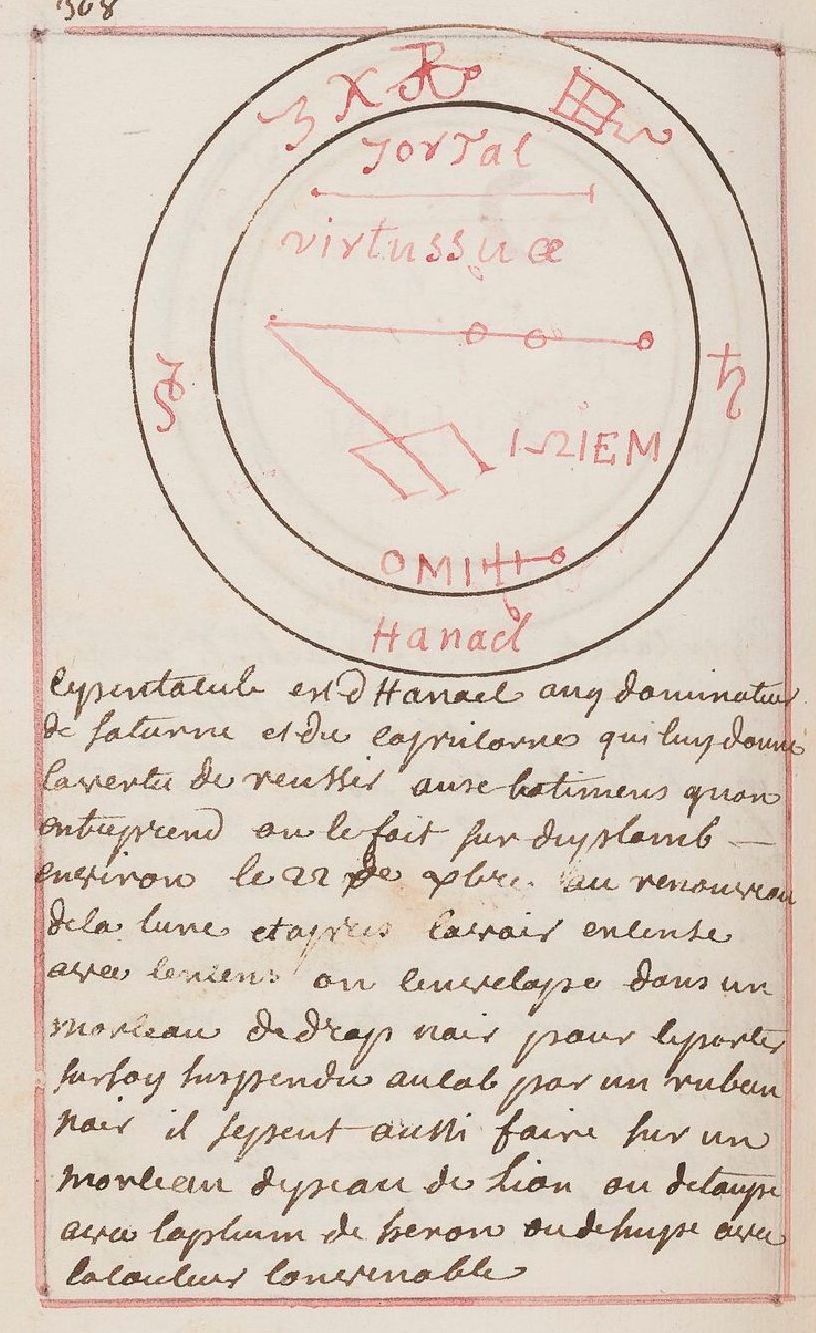 368
Jortal
virtussuæ
IΩIEM
OMIH
Hanael
lepentacule est d Hanael ang dominateur
de saturne et du capricorne qui luy donne
la vertu de reussir aux batimens quon
entreprend on le fait sur du plomb
environ le 22 de xbre. au renouveau
de la lune et apres lavoir encensé
avec lencens on lenvelope dans un
morceau de drap noir pour leporter
sursoy suspendu au col par un ruban
noir il sepeut aussi faire sur un
morceau depeau de Lion ou detaupe
avec laplume de heron ou dehupe avec
lacouleur convenable